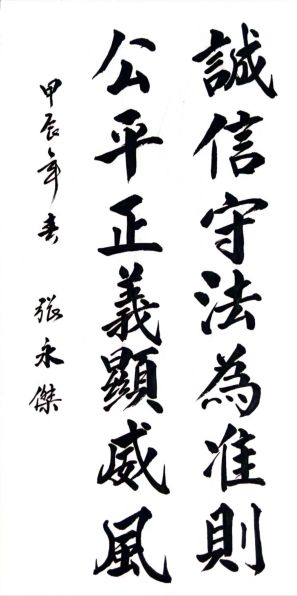 誠信守法為准則
公平正義顯威風
甲辰年春 張永傑